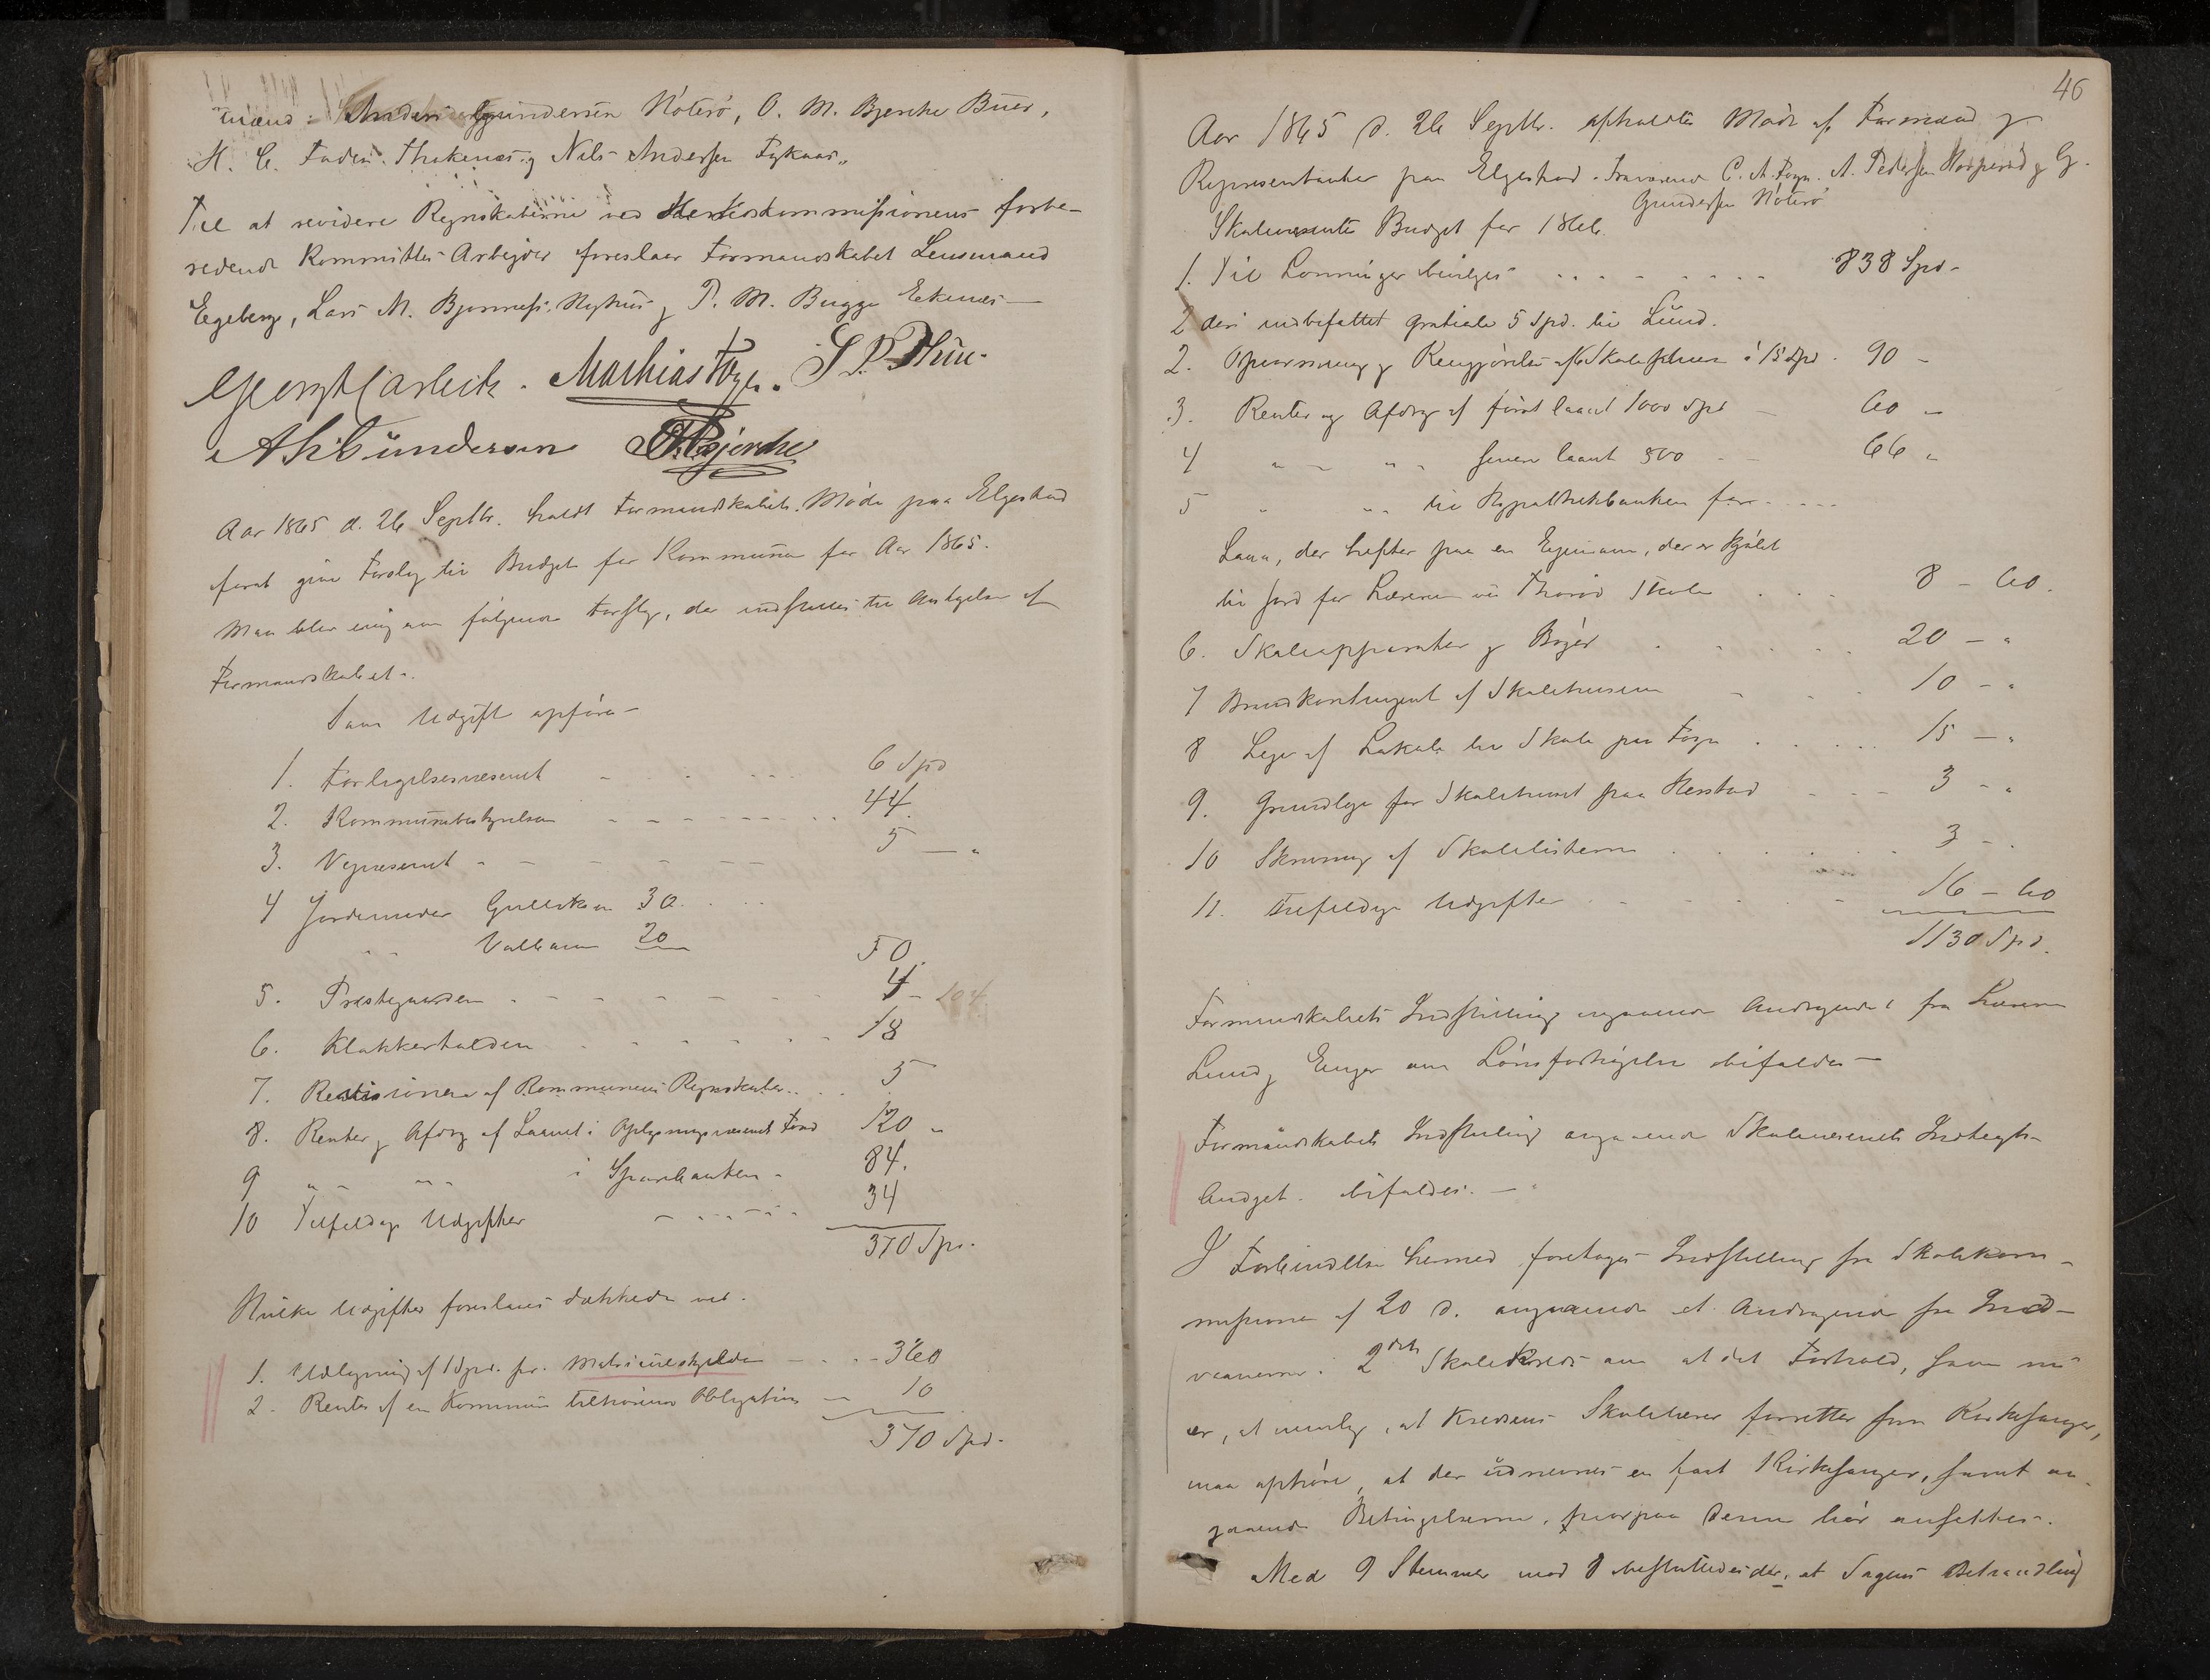 mænd: Anders Gundersen Nøterø, O. M. Bjerche Buer,
H. C. Foden Thokenæs og Nils Andersen Fyknes.
Til at revidere Regnskaberne ved Herredskommissionens forbe-
redende Kommittee-Arbejder foreslaar Formandskabet Lensmand
Egeberg, Lars M. Bjønness, Nyhus og P. M. Bugge Ekenæs
Georg Carlsen. Mathias Føyn. S P. Thue.
A Gundersen OMBjerche
Aar 1865 d. 26 Septbr. holdt Formandskabet Møde paa Elgestad
forat give Forslag til Budget for Kommunen for Aar 1865.
Man blev enig om følgende Forslag, der indstilles til Antagelse af
Formandskabet.
Som Udgift opføres
1. Forligelsesvæsenet 6 Spd
2. Kommunebestyrelsen 44.
3. Vejvæsenet 5 — "
4 Jordemoder Gulliksen 30
" " Vallum 20 50.
5. Præstegaarden 4 -
6. Klokkerholden 18
7. Revisionen af Kommunens Regnskaber 5
8. Renter og Afdrag af Laanet i Oplysningsvæsenets Fond 120 "
9 " " " " i Sparebanken 84.
10 Tilfeldige Udgifter 34
370 Spd.
Hvilke Udgifter foreslaaes dækkede ved.
1. Udligning af 1 Spd. pr. Matriculskylden 360
2. Renter af en Kommunen tilhørende Obligation 10
370 Spd.
46
Aar 1865 d. 26 Septbr. afholdtes Møde af Formænd og
Repræsentanter paa Elgestad. Fraværende C. A. Føyn. A. Pedersen og G.
Gundersen Nøterø
Skolevæsenets Budget for 1866.
1. Til Lønninger bevilges 838 Spd.
2 deri indbefattet gratiale 5 Spd. til Lund.
2. Opvarmning og Rengjørelse af 6 Skolestuer á 15 Spd. 90 -
3. Renter og Afdrag af først laant 1000 Spd 60 -
4 " " " " senere laant 500 66 "
5 " " " til Hypothekbanken for
Laan, der hefter paa en Ejendom, der er kjøbt
til Jord for Læreren ved Thorød Skole 8 - 60.
6. Skoleapparater og Bøger 20 - "
7 Brandkontingent af Skolehusene 10 - "
8 Leje af Lokale til Skole paa Føyn 15 - "
9. Grundleje for Skolehuset paa Herstad 3 - "
10 Skrivning af Skolelisterne 3 - "
11. Tilfeldige Udgifter 16 - 60
1130 Spd.
Formandskabets Indstilling angaaende Andragender fra Lærerne
Lund og Enger om Lønsforhøjelse bifaldes —
Formandskabets Indstilling angaaende Skolevæsenets Indtægts-
budget. bifaldes. —
I Forbindelse hermed foretages Indstilling fra Skolekom-
missionen af 20 d. angaaende et Andragende fra Ind-
vaanerne i 2det Skolekreds om at det Forhold, som nu
er, at nemlig, at Kredsens Skolelærer forretter som Kirkesanger,
maa ophøre, at der udnevnes en fast Kirkesanger, samt an-
gaaende Betingelserne, hvorpaa denne bør ansettes.
Med 9 Stemmer mod 8 besluttedes der, at Sagens Behandling